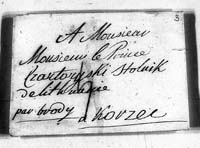 3
A Monsieur
Monsieur le Prince
Czartoryski Stolnik
de lithuanie
par brody
à Korzec